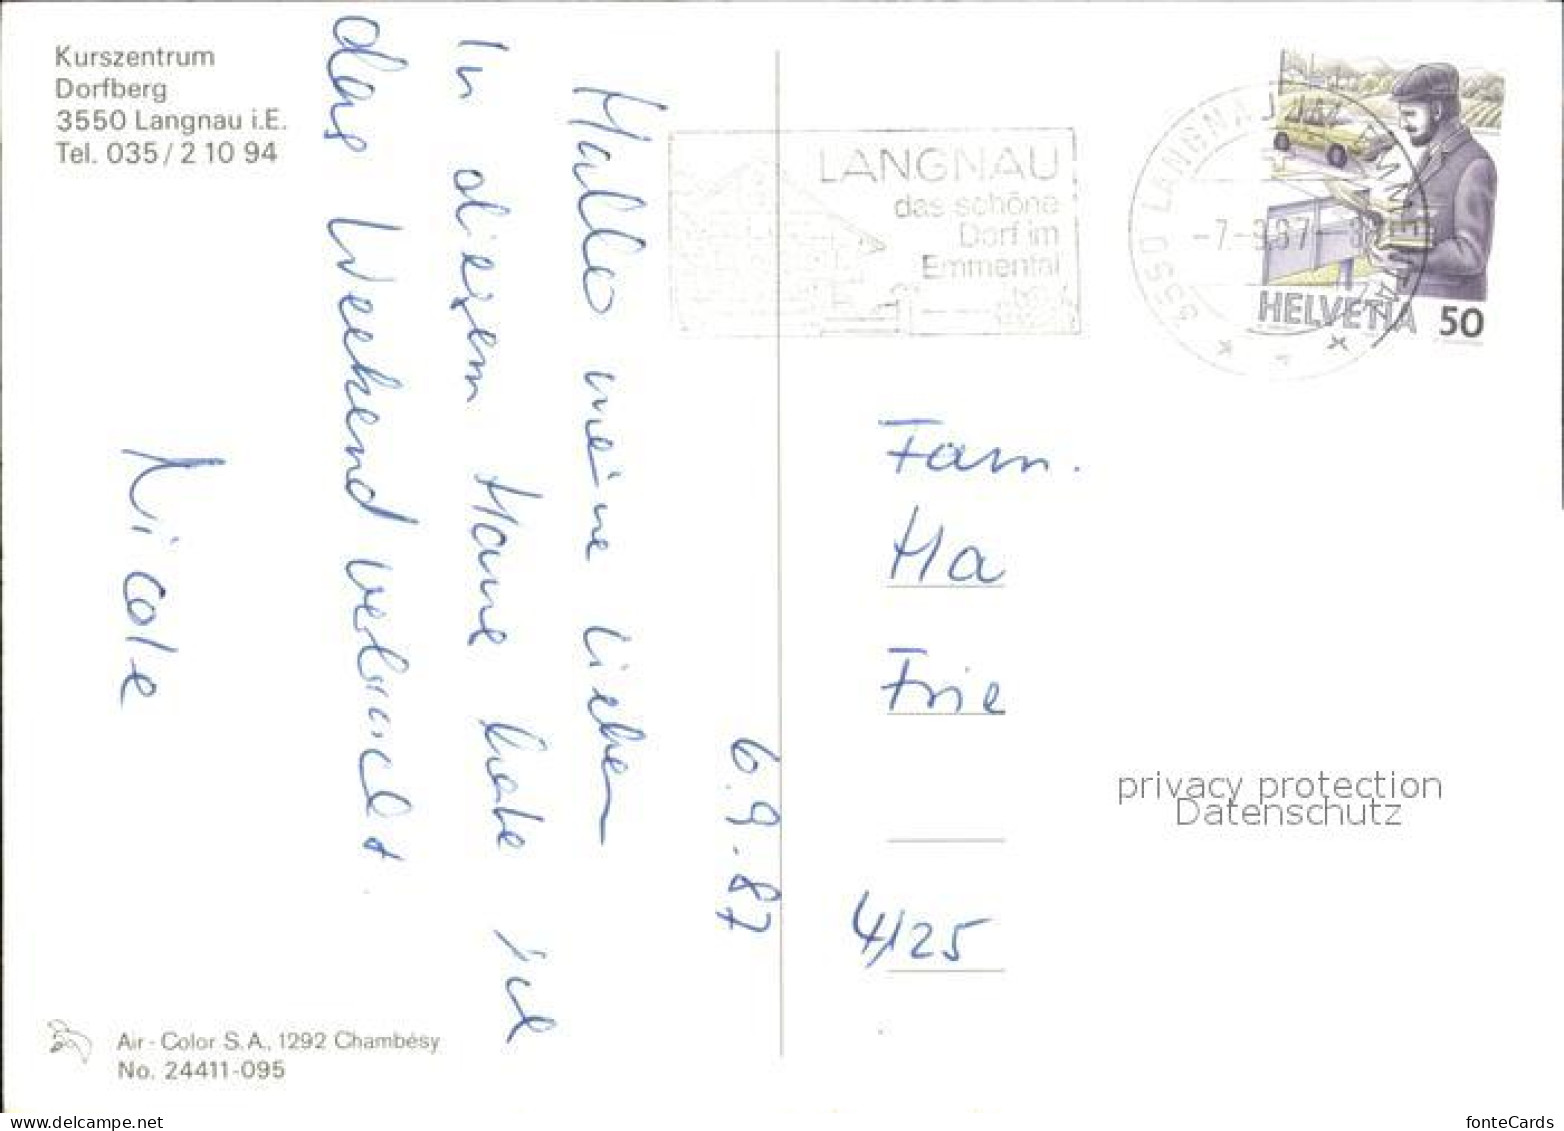 Kurszentrum
Dorfberg
3550 Langnau i.E.
Tel. 035 / 2 10 94
6.9.87
Hallo meine Lieben
In diesem Hause habe ich
das Weekend verbracht.
Nicole
LANGNAU
das schöne
Dorf im
Emmental
3550 LANGNAU
EMMENTAL
-7-9.87-
HELVETIA 50
Fam.
Ha
Frie
4/125
privacy protection
Datenschutz
Air-Color S.A., 1292 Chambésy
No. 24411-095
www.delcampe.net
fonteCards